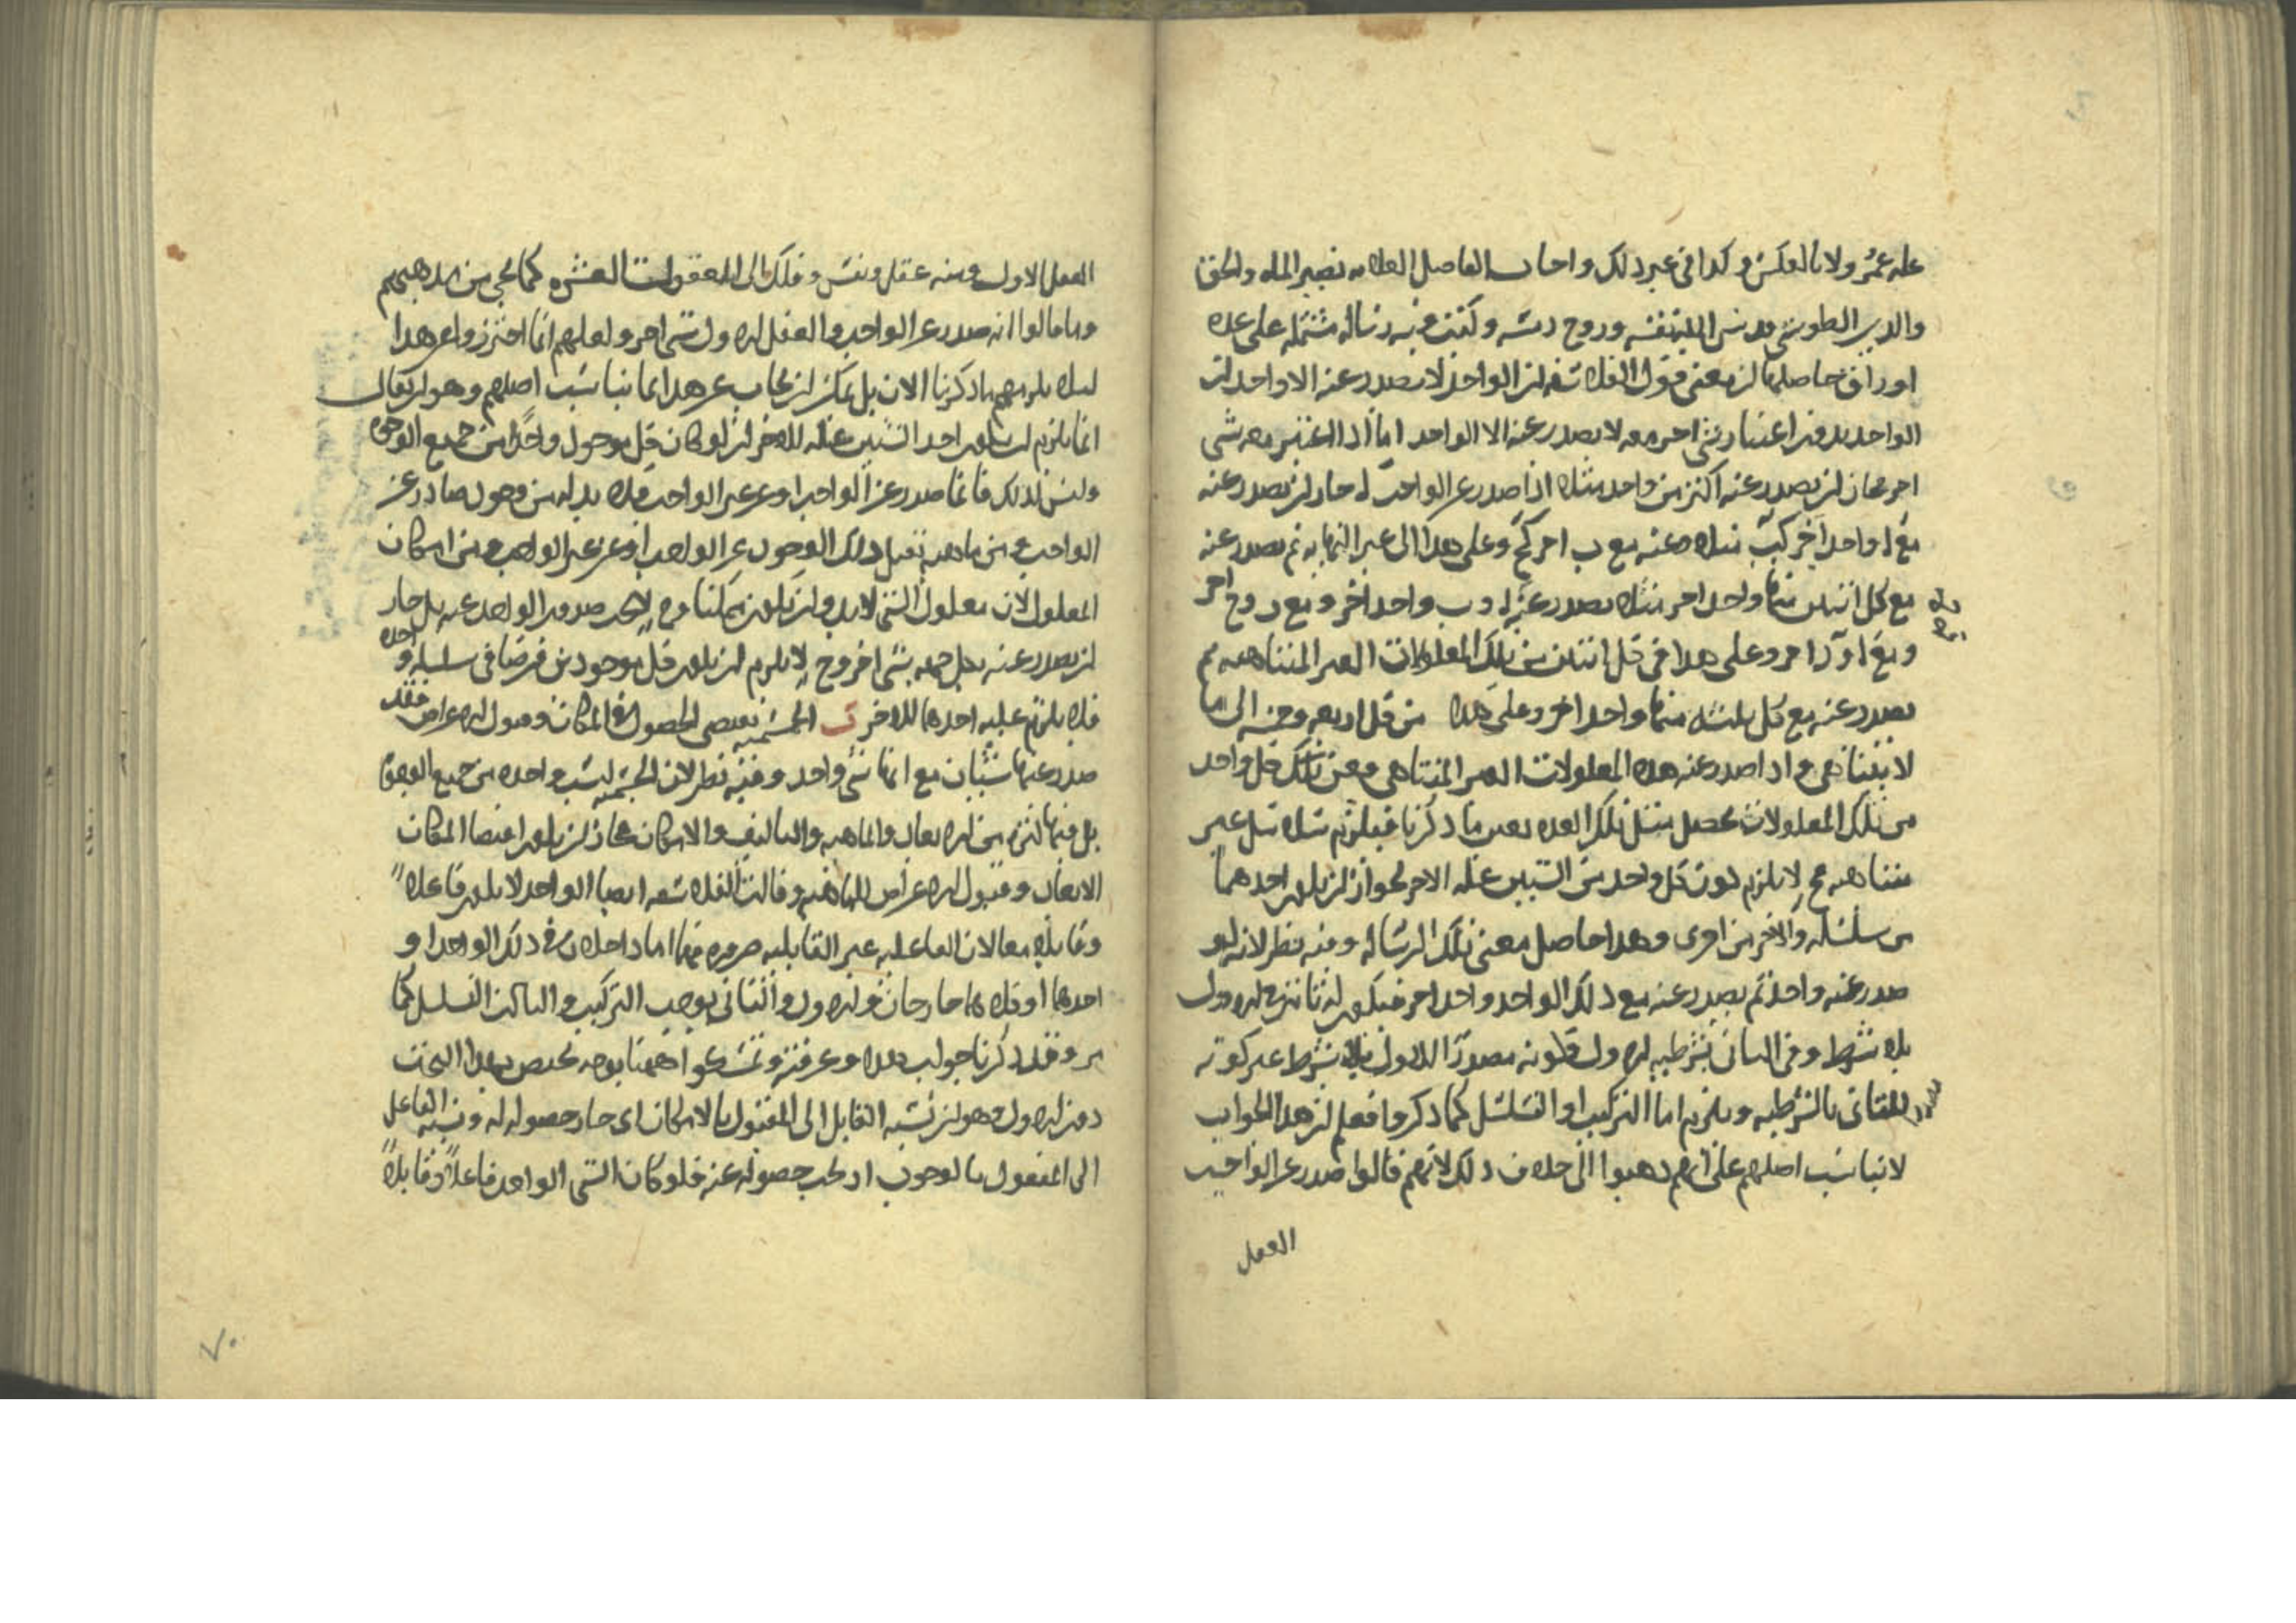 علة عمرو لا بالعكس وكذا في غير ذلك واجاب الفاضل العلامة نصير الملة والحق
والدين الطوسي قدس الله نفسه وروح رمسه وكتب فيه رسالة مشتملة على عدة
اوراق حاصلها ان معنى قول الفلاسفة ان الواحد لا يصدر عنه الا واحد ان
الواحد بدون اعتبار شي اخر معه لا يصدر عنه الا الواحد اما اذا اعتبر معه شي
اخر فجاز ان يصدر عنه اكثر من واحد مثلا اذا صدر عن الواحب ا جاز ان يصدر عنه
مع ا واحد آخر كب مثلا وعنه مع ب اخر كج وعلى هذا الى غير النهاية ثم يصدر عنه
مع كل اثنين منها واحد اخر مثلا يصدر عنه ا و ب واحد اخر ومع د و ج اخر
ومع ا و د اخر وعلى هذا في كل اثنين من تلك المعلولات الغير المتناهية ثم
يصدر عنه مع كل ثلثة منها واحد اخر وعلى هذا من كل اربعة وخمسة الى ما
لا يتناهى واذا صدر عنه هذه المعلولات الغير المتناهي فعن كل واحد
من تلك المعلولات يحصل مثل تلك العدة بعين ما ذكرنا فيلزم سلاسل غير
متناهية فح لا يلزم كون كل واحد من الشيين علة الاخر لجواز ان يكون احدهما
من سلسلة والاخر من اخرى وهذا حاصل معنى تلك الرسالة وفيه نظر لانه لو
صدر عنه واحد ثم يصدر عنه مع ذلك الواحد واحد اخر فيكون تاثيره الاول
بلا شرط وفي الثاني بشرطية الاول فكونه مصدرا للاول بلا شرط غير كونه
للثاني بالشرطية ويلزم اما التركيب او التسلسل كما ذكروا فعلم ان هذا الجواب
لا يناسب اصلهم على انهم ذهبوا الى خلاف ذلك لانهم قالوا صدر عن الواجب
العقل
العقل الاول ومنه عقل ونفس وفلك الى العقول العشرة كما يجي من مذهبهم
وما قالوا انه صدر عن الواجب والعقل الاول شي اخر ولعلهم انما احترزوا عن هذا
لئلا يلزمهم ما ذكرنا الان بل يمكن ان يجاب عن هذا بما يناسب اصلهم وهو ان يقال
انما يلزم ان يكون احد الشيين علة للاخر ان لو كان كل موجود واحدا من جميع الوجوه
وليس كذلك فانما صدر عن الواجب او عن غير الواجب فلا بد له من وجود صادر عن
الواجب ومن ماهية تقبل ذلك الوجود عن الواجب او عن غير الواجب ومن امكان
المعلول لان معلول الشي لابد وان يكون ممكنا وح لا يجب صدور الواحد عنه بل جاز
ان يصدر عنه بكل جهة شي اخر وح لا يلزم ان يكون كل موجودين فرضا في سلسلة واحدة
فلا يلزم علية احدهما للاخر ت الجسمية تقتضي الحصول في المكان وقبول الاعراض فقد
صدر عنها شيئان مع انها شي واحد وفيه نظر لان الجسمية ليست واحدة من جميع الوجوه
بل فيها كثرة من الابعاد والماهية والتاليف والامكان فجاز ان يكون اقتضا المكان
الابعاد وقبول الاعراض للماهية وقالت الفلاسفة ايضا الواحد لا يكون فاعلا
وقابلا معا لان الفاعلية غير القابلية ضرورة فهما اما داخلان في ذلك الواحد او
احدهما او كلاهما خارجان والاول والثاني يوجب التركيب والثالث التسلسل كما
مر وقد ذكرنا جواب هذا وعرفته وتمسكوا ههنا بوجه يختص بهذا البحث
دون الاول وهو ان نسبة القابل الى المقبول بالامكان اي جاز حصوله له ونسبة الفاعل
الى المفعول بالوجوب اذ يجب حصوله عنه فلو كان الشي الواحد فاعلا وقابلا
٧٠